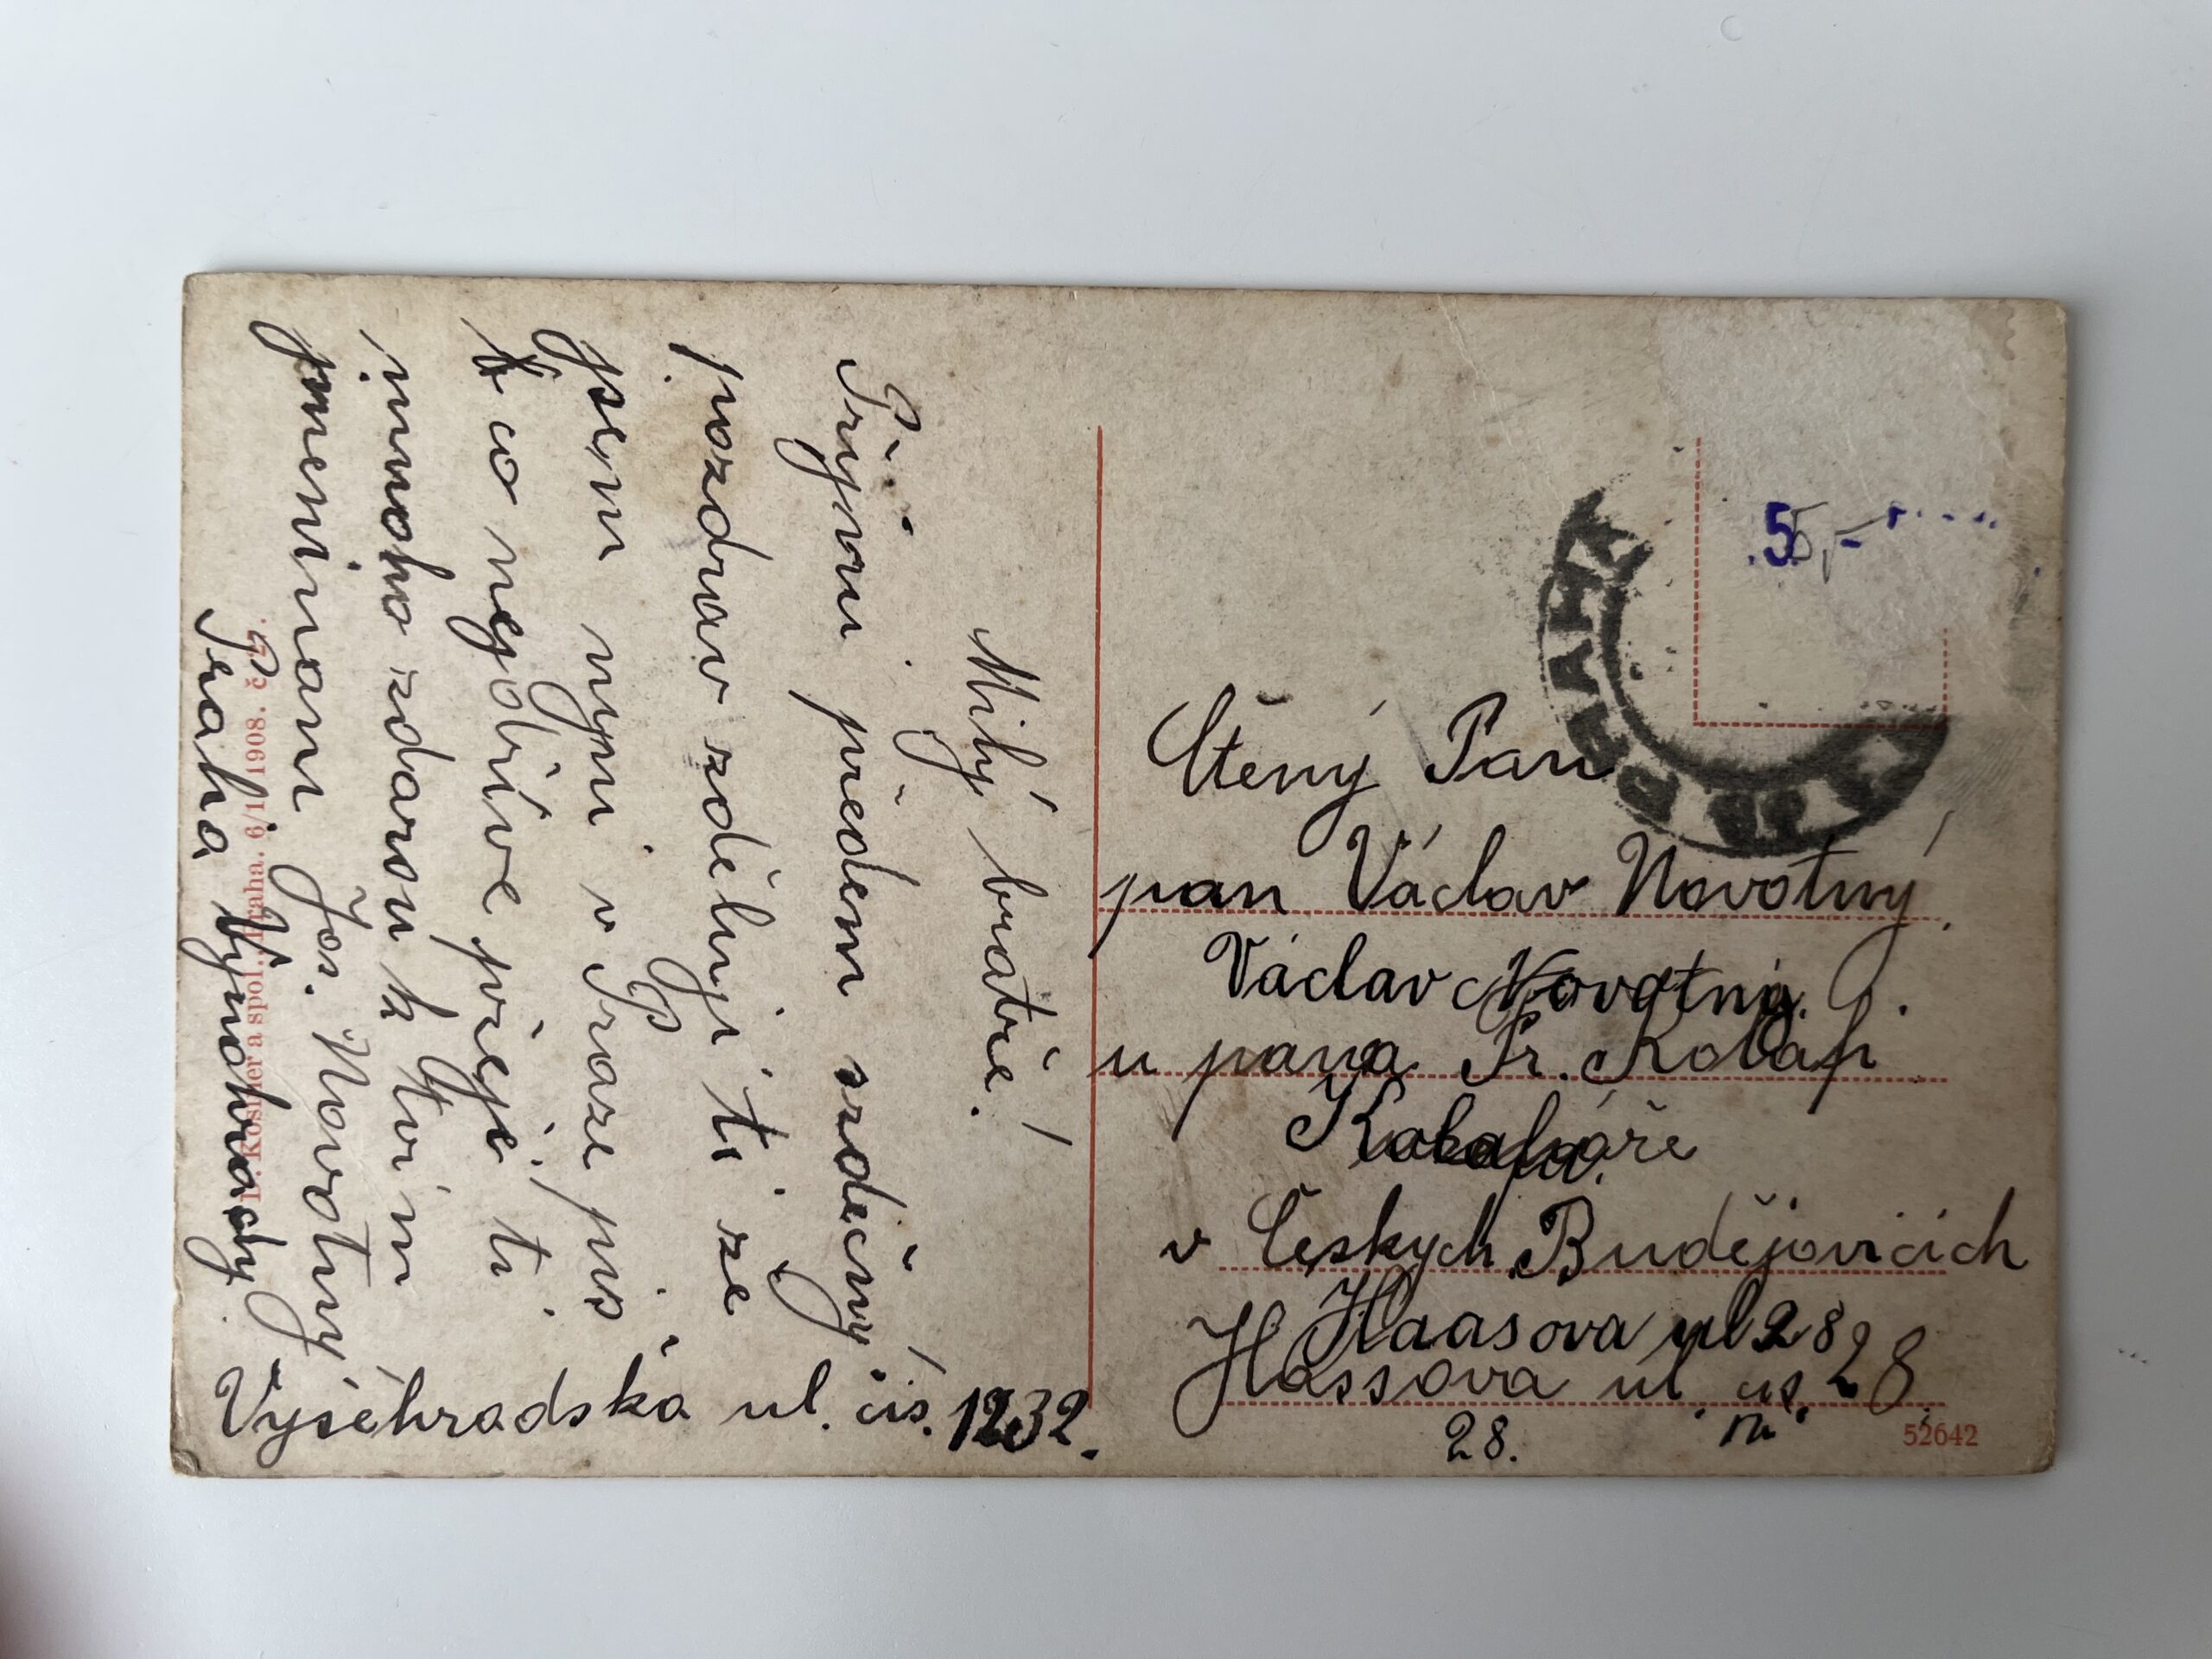 Milý bratře!
Přijmi předem srdečný
pozdrav zděluji ti že
jsem nyni v Praze piš
co nejdříve přeji ti
mnoho zdaru k tvim
jmeninam Jos. Novotný
Praha Vynohrady
Vyšehradska ul. čis. 1232.
D. Kosiner a spol., Praha. 6/1 1908. č 27.
PRAHA
55,-
Ctěný Pan
pan Václav Novotný
Václav Novotný
u pana Fr. Kolař
v Českych Budějovicich
Haasova ul 28
Hassova ul čis 28.
28.
52642